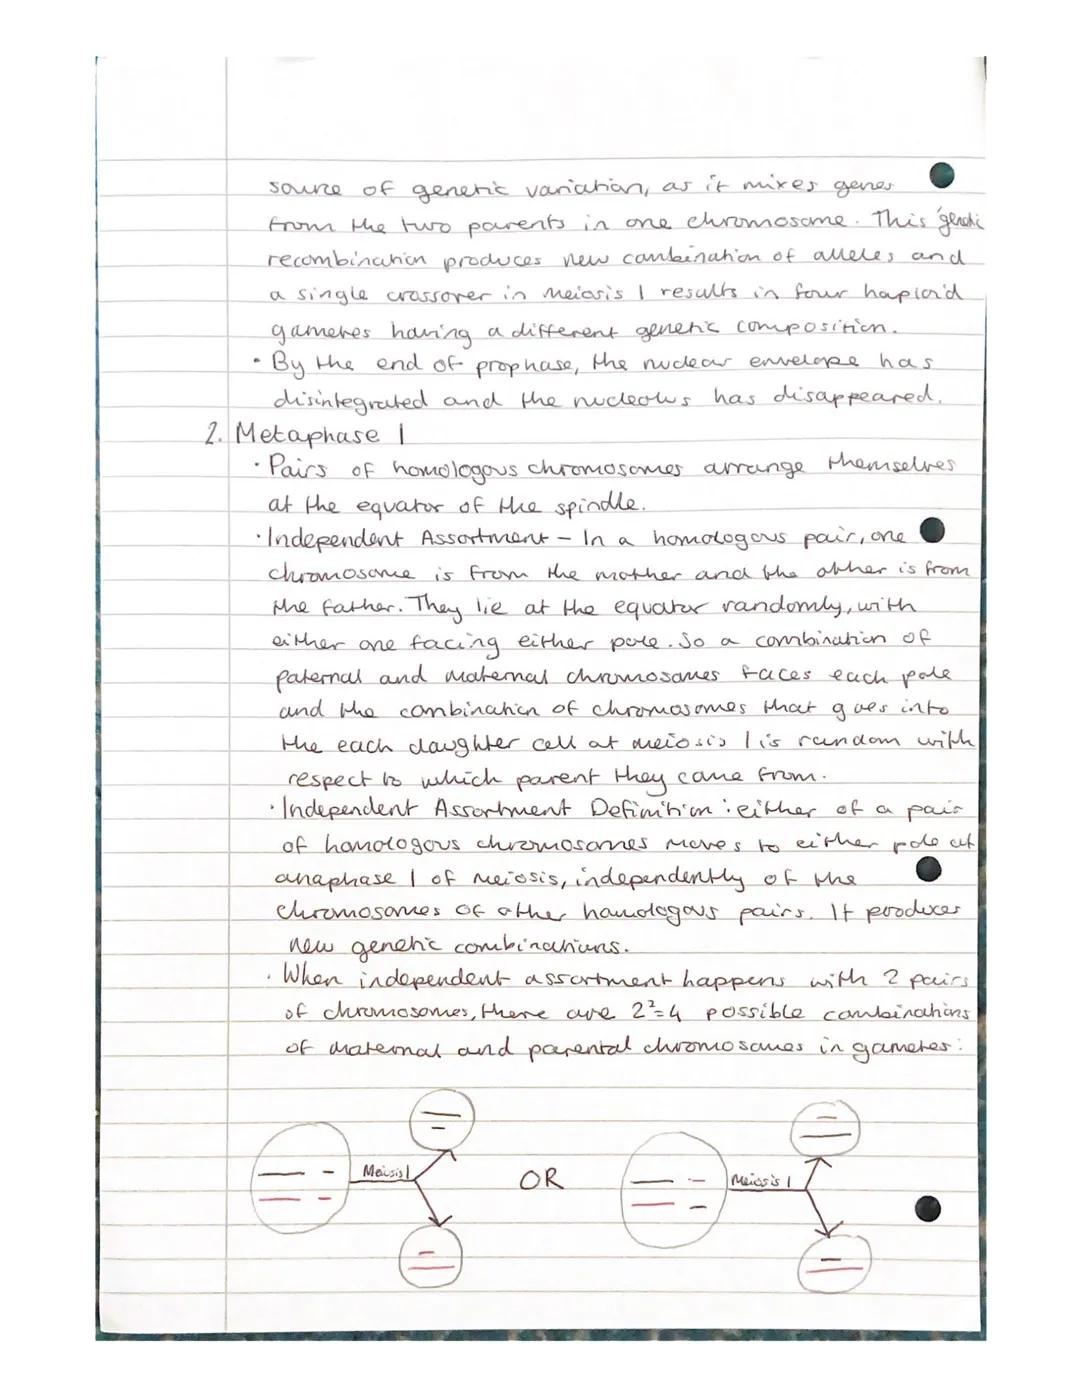 source of genetic variation, as it mixes genes
from the two parents in one chromosome. This genetic
recombination produces new combination of alleles and
a single crossover in meiosis I results in four haploid
gametes having a different genetic composition.
• By the end of prophase, the nuclear envelope has
disintegrated and the nucleolus has disappeared.
2. Metaphase I
• Pairs of homologous chromosomes arrange themselves
at the equator of the spindle.
• Independent Assortment - In a homologous pair, one
chromosome is from the mother and the other is from
the father. They lie at the equator randomly, with
either one facing either pole. So a combination of
paternal and maternal chromosomes faces each pole
and the combination of chromosomes that goes into
the each daughter cell at meiosis I is random with
respect to which parent they came from.
• Independent Assortment Definition: either of a pair
of homologous chromosomes moves to either pole at
anaphase I of meiosis, independently of the
chromosomes of other homologous pairs. It produces
new genetic combinations.
• When independent assortment happens with 2 pairs
of chromosomes, there are 2²=4 possible combinations
of maternal and parental chromosomes in gametes:
Meiosis I OR Meiosis I